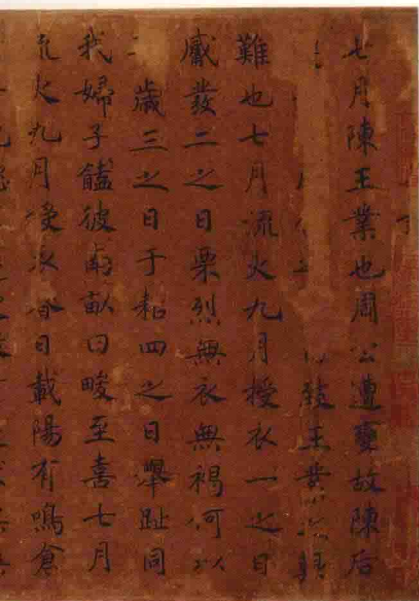 七月陳王業也周公遭變故陳后
致王業之艱
難也七月流火九月授衣一之日
觱發二之日栗烈無衣無褐何以
歲三之日于耜四之日舉趾同
我婦子饁彼南畝田畯至喜七月
流火九月授衣春日載陽有鳴倉